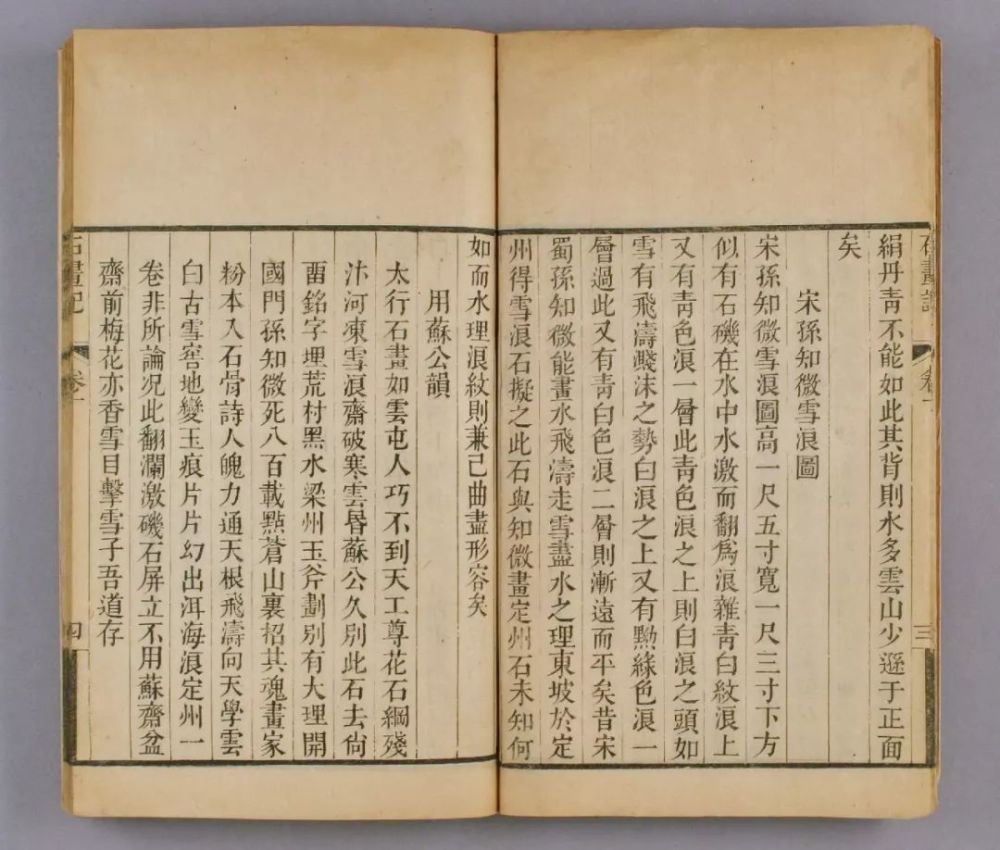 絹丹靑不能如此其背則水多雲山少遜于正面
矣
宋孫知微雪浪圖
宋孫知微雪浪圖高一尺五寸寬一尺三寸下方
似有石磯在水中水激而翻爲浪雜靑白紋浪上
又有靑色浪一層此靑色浪之上則白浪之頭如
雪有飛濤濺沫之勢白浪之上又有黝綠色浪一
層過此又有靑白色浪二層則漸遠而平矣昔宋
蜀孫知微能畫水飛濤走雪盡水之理東坡於定
州得雪浪石擬之此石與知微畫定州石未知何
石畫記
卷一
三
如而水理浪紋則兼已曲盡形容矣
用蘇公韻
太行石畫如雲屯人巧不到天工尊花石綱殘
汴河凍雪浪齋破寒雲昏蘇公久別此石去尙
留銘字埋荒村黑水梁州玉斧劃別有大理開
國門孫知微死八百載點蒼山裏招其魂畫家
粉本入石骨詩人魄力通天根飛濤向天學雲
白古雪窖地變玉痕片片幻出洱海浪定州一
卷非所論况此翻瀾激磯石屏立不用蘇齋盆
齋前梅花亦香雪目擊雪子吾道存
石畫記
卷一
四